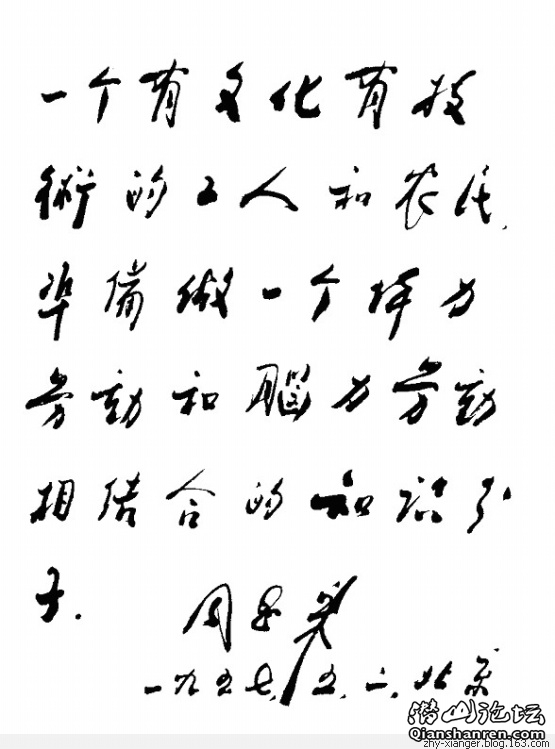 一个有文化有技
術的工人和农民,
準備做一个体力
劳动和腦力劳动
相结合的知识分
子.
周恩来
一九五七,五,二,北京
潜山论坛
Qianshanren.com
zhy-xianger.blog.163.com